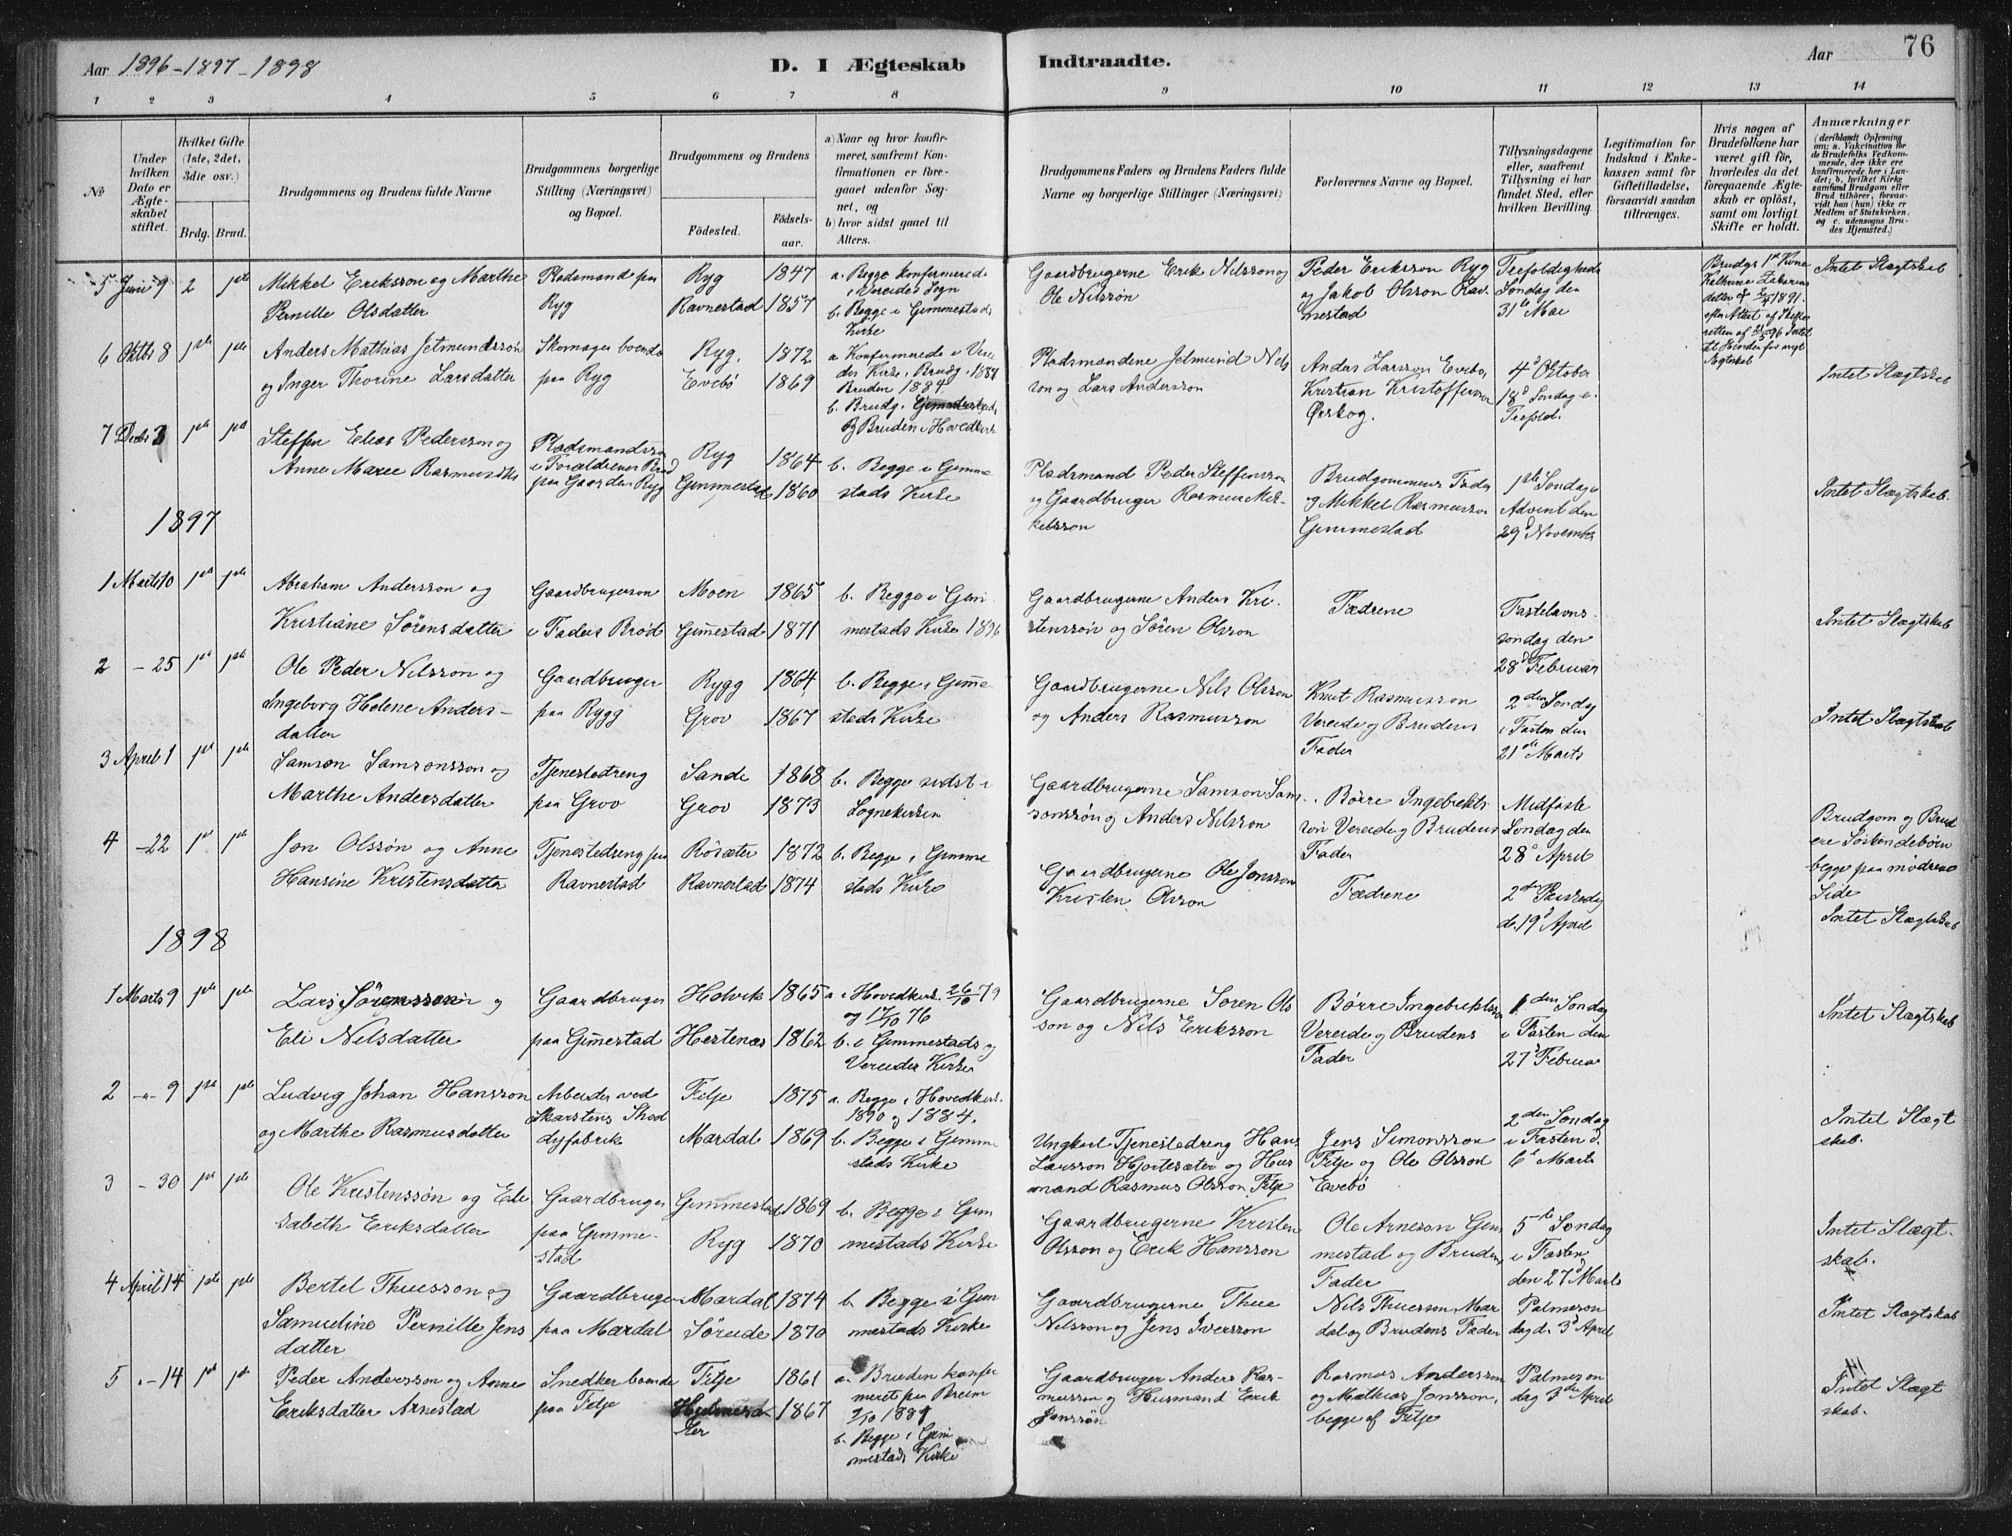 Aar 1896-1897-1898
D. I Ægteskab
Indtraadte.
Aar
76
1 2 3 4 5 6 7 8 9 10 11 12 13 14
No
Under hvilken Dato er Ægteskabet stiftet.
Hvilket Gifte (1ste, 2det, 3die osv.)
Brdg. Brud.
Brudgommens og Brudens fulde Navne
Brudgommens borgerlige Stilling (Næringsvei) og Bopæl.
Brudgommens og Brudens
Fødested.
Fødselsaar.
a) Naar og hvor konfirmeret, saafremt Konfirmationen er foregaaet udenfor Sognet, og
b) hvor sidst gaaet til Alters.
Brudgommens Faders og Brudens Faders fulde Navne og borgerlige Stillinger (Næringsvei)
Forlovernes Navne og Bopæl.
Tillysningsdagene eller, saafremt Tillysning ei har fundet Sted, efter hvilken Bevilling.
Legitimation for Indskud i Enkekassen samt for Giftetilladelse, forsaavidt saadan tiltrænges.
Hvis nogen af Brudefolkene har været gift før, hvorledes da det foregaaende Ægteskab er opløst, samt om lovligt Skifte er holdt.
Anmærkninger
(deriblandt Oplysning om: a. Vakcination for de Brudefolks Vedkommende, der ikke ere konfirmerede her i Landet; b. hvilket Kirkesamfund Brudgom eller Brud tilhører, forsaavidt han (hun) ikke er Medlem af Statskirken, og c. udensogns Brudes Hjemsted.)
5 Juni 9 2 1ste
Mikkel Eriksson og Marthe
Pernille Olsdatter
Pladsmand paa
Ryg
Ryg 1847
Ravnestad 1857
a. Begge konfirmerede
i Vereides Sogn
b. Begge i Gimmestads
Kirke
Gaardbrugerne Erik Nilsson og
Ole Nilssøn
Peder Eriksson Ryg
og Jakob Olsson Rav
nestad
Trefoldigheds
Søndag den
31te Mai
Brudgs 1ste Kone
Kathrine Zakarias
datter
1891.
efter Attest af Skifte
retten af
Intet Slægtskab
6 Oktbr 8 1ste 1ste
Anders Mathias Jetmundssøn
og Inger Thorine Larsdatter
Skomager boende
paa Ryg
Ryg. 1872
Evebø 1869
a Konfirmerede i Vere
des Kirke, Brudg. 1887
Bruden 1884
b. Brudg. i Gimmestads
og Bruden i Hovedkirk
Pladsmændene Jetmund Nils
son og Lars Andersson
Anders Larsson Evebø
Kristian Kristoffersen
Ørskog.
4d Oktober
18d Søndag e.
Trefold.
Intet Slægtskab
7 Decbr 3 1ste 1ste
Steffen Elias Pedersson og
Anne Marie Rasmusdtr
Pladsmandssøn
i Forældrenes Brød
paa Gaarden Ryg
Ryg 1864
Gimmestad 1860
b. Begge i Gimme
stads Kirke
Pladsmand Peder Steffensson
og Gaardbruger Rasmus Mik
kelsson
Brudgommens Fader
og Mikkel Rasmusson
Gimmestad
1ste Søndag i
Advent den
29d November
Intet Slægtskab.
1897
1 Marts 10 1ste 1ste
Abraham Andersson og
Kristiane Sørensdatter
Gaardbrugersøn
i Faders Brød
Moen 1865
Gimestad 1871
b. Begge i Gim
mestads Kirke 1896
Gaardbrugerne Anders Kri-
stenssøn og Søren Olsson
Fædrene
Fastelavns-
søndag den
28d Februar
Intet Slægtskab
2 - 25 1ste 1ste
Ole Peder Nilsson og
Ingeborg Helene Anders-
datter
Gaardbruger
paa Rygg
Rygg 1864
Grov 1867
b. Begge i Gimme
stads Kirke
Gaardbrugerne Nils Olsson
og Anders Rasmusson
Knut Rasmusson
Vereide og Brudens
Fader
2den Søndag
i Fasten den
21de Marts
Intet Slægtskab
3 April 1 1ste 1ste
Samson Samsonsson og
Marthe Andersdatter
Tjenestedreng
paa Grov
Sande 1868
Grov 1873
b. Begge sidst i
Sognekirken
Gaardbrugerne Samson Sam-
sonssøn og Anders Nilsson
Børre Ingebrikts
søn Vereide og Brudens
Fader
Midfaste
Søndag den
28d April
Brudgom og Brud
ere Søskendebørn
begge paa mødrene
Side
4 - 22 1ste 1ste
Jon Olssøn og Anne
Hansine Kristensdatter
Tjenestedreng paa
Ravnestad
Rösæter 1872
Ravnestad 1874
b. Begge i Gimme
stads Kirke
Gaardbrugerne Ole Jonsson
Kristen Olsson
Fædrene
2den Paaskedag
d. 19d April
Intet Slægtskab
1898
1 Marts 9 1ste 1ste
Lars Sørenssøn og
Eli Nilsdatter
Gaardbruger
paa Gimestad
Holvik 1865
Hestenæs 1862
a. i Hovedkirk. 26/10 79
og 17/10 76
b. i Gimmestads og
Vereides Kirke
Gaardbrugerne Søren Ols
son og Nils Eriksson
Børre Ingebriktssøn
Vereide og Brudens
Fader
1den Søndag
i Fasten den
27d Februar
Intet Slægtskab
2 -"- 9 1ste 1ste
Ludvig Johan Hansson
og Marthe Rasmusdatter
Arbeider ved
Skarstens Shod
dyfabrik
Fitje 1875
Mardal 1869
a. Begge i Hovedkirk.
1890 og 1884.
b. Begge i Gimme
stads Kirke
Ungkarl Tjenestedreng Hans
Larsson Hjortesæter og Hus
mand Rasmus Olsson Fitje
Jens Simonsson
Fitje og Ole Olsson
Evebø
2den Søndag
i Fasten d.
6te Marts
Intet Slægt
skab.
3 - 30 1ste 1ste
Ole Kristenssøn og Eli
sabeth Eriksdatter
Gaardbruger
paa Gimme-
stad
Gimmestad 1869
Ryg 1870
b. Begge i Gim
mestads Kirke
Gaardbrugerne Kristen
Olsson og Erik Hansson
Ole Arneson Gim
mestad og Brudens
Fader
5te Søndag
i Fasten
den 27d Marts
Intet Slægt-
skab.
4 April 14 1ste 1ste
Bertel Thuesson og
Samueline Pernille Jens
datter
Gaardbruger
paa Mardal
Mardal 1874
Søreide 1870
b. Begge i Gim
mestads Kirke
Gaardbrugerne Thue
Nilsson og Jens Iversson
Nils Thuesson Mar
dal og Brudens Fader
Palmesøn
dag d. 3d April
Intet Slægtskab
5 - 14 1ste 1ste
Peder Andersson og Anne
Eriksdatter Arnestad
Snedker boende
paa Fitje
Fitje 1861
1867
a. Bruden konfir
meret paa Breim
2/10 1881
b. Begge i Gim
mestads Kirke
Gaardbruger Anders Ras-
musson og Husmand Erik
Jonssøn
Rasmus Andersson
og Mathias Jonsson,
begge af Fitje
Palmesøn
dag 3die April
Intet Slægt
skab.